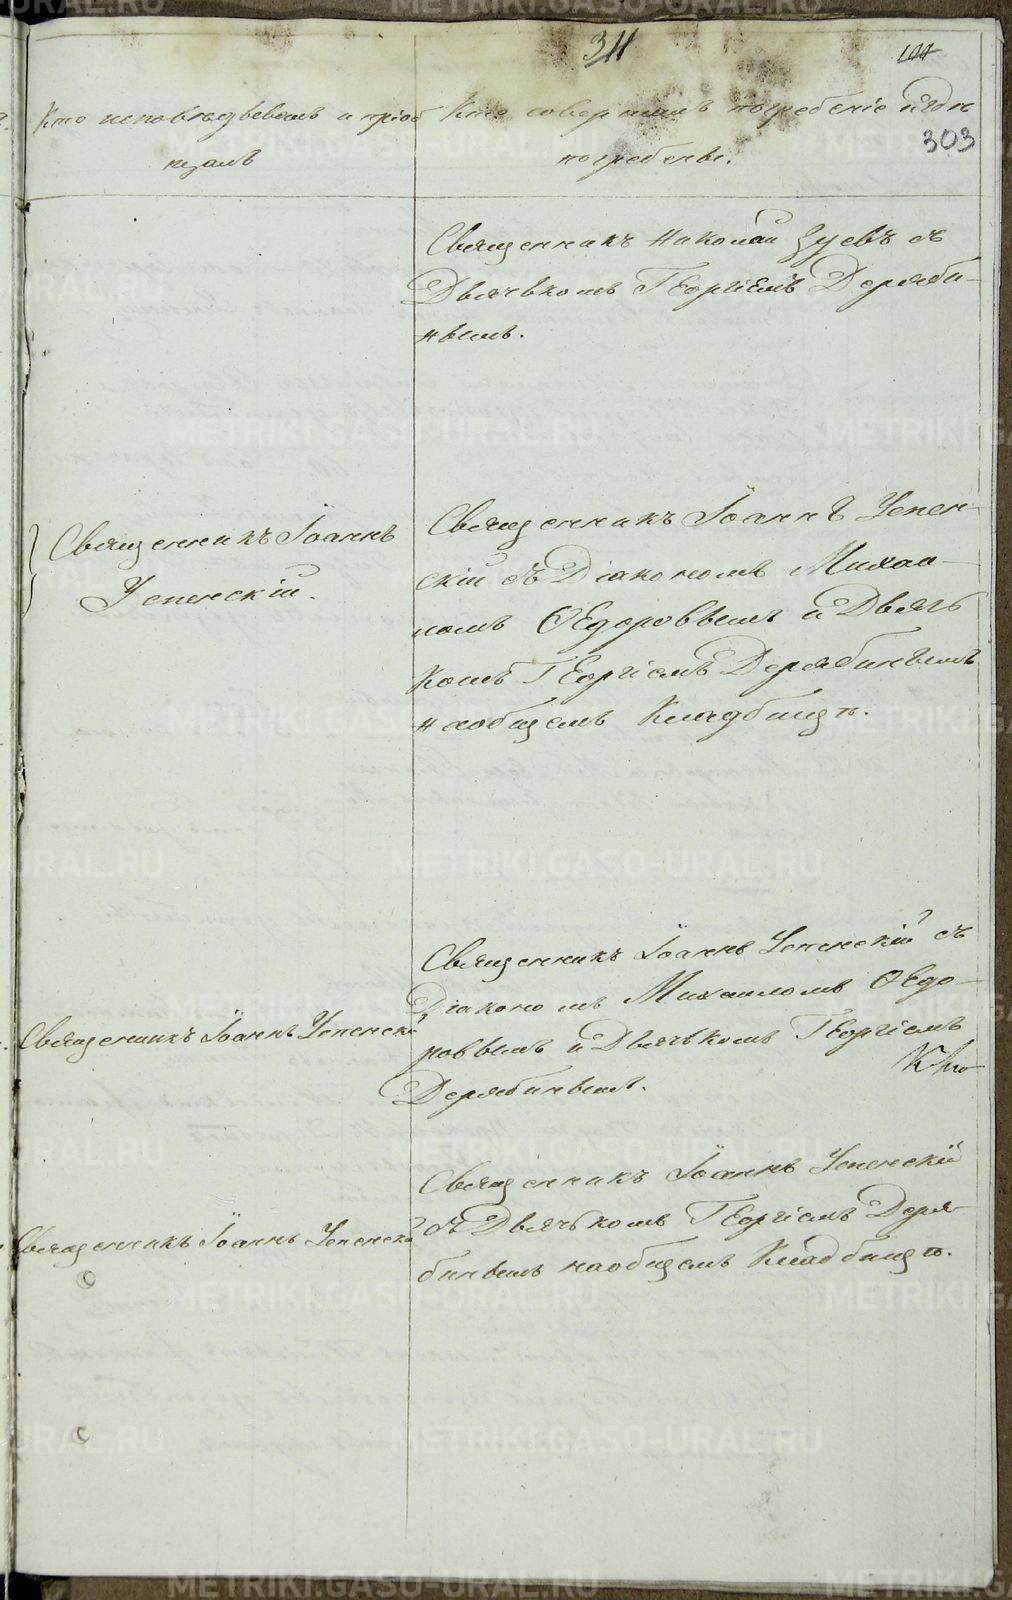 311
303
Кто исповѣдывалъ и пріоб
щалъ
Кто совершилъ погребеніе и гдѣ
погребены.
Священникъ Николай Зуевъ съ
Дьячкомъ Георгіемъ Деряби-
нымъ.
Священникъ Іоаннъ
Успенскій.
Священникъ Іоаннъ Успен-
скій съ Діакономъ Михаи-
ломъ Ѳедоровымъ и Дьяч
комъ Георгіемъ Дерябинымъ
наобщемъ Кладбищѣ.
Священникъ Іоаннъ Успенскій
Священникъ Іоаннъ Успенскій съ
Діакономъ Михаиломъ Ѳедо-
ровымъ и Дьячькомъ Георгіемъ
Дерябинымъ.
Священникъ Іоаннъ Успенскій
Священникъ Іоаннъ Успенскій
съ Дьячькомъ Георгіемъ Деря
бинымъ наобщемъ Кладбищѣ.
METRIKI.GASO-URAL.RU